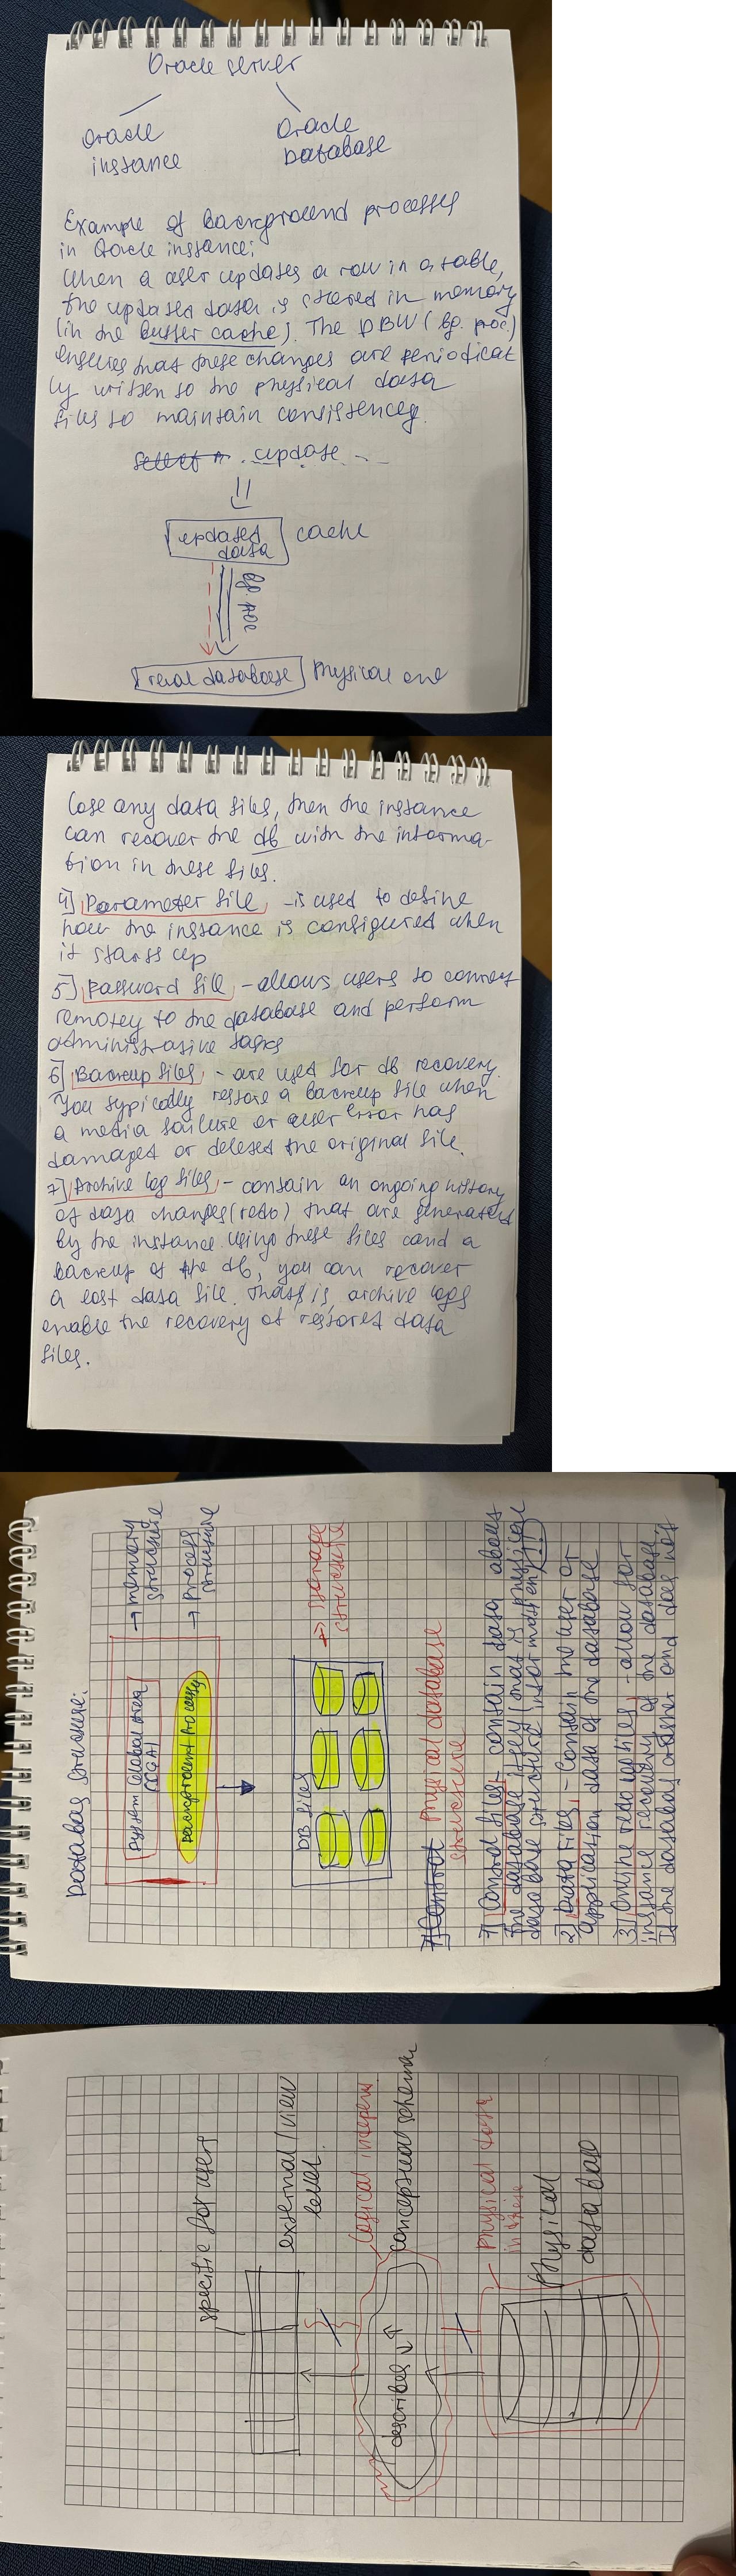 Oracle server
Oracle
instance
Oracle
Database
Example of background processes
in Oracle instance:
When a user updates a row in a table,
the updated data is stored in memory
(in the buffer cache). The DBW (bg. proc.)
ensures that these changes are periodical
ly written to the physical data
files to maintain consistency.
update
updated
data
cache
bg. proc
real database
physical one
lose any data files, then the instance
can recover the db with the informa-
tion in these files.
4] Parameter file - is used to define
how the instance is configured when
it starts up
5] Password file - allows users to connect
remotey to the database and perform
administrative tasks
6] Backup files - are used for db recovery.
You typically restore a backup file when
a media failure or user error has
damaged or deleted the original file.
7] Archive log files - contain an ongoing history
of data changes (redo) that are generated
by the instance. Using these files and a
backup of the db, you can recover
a lost data file. That is, archive logs
enable the recovery of restored data
files.
Database structure:
System Global Area
(SGA)
→ memory
structure
Background processes
→ Process
structure
DB files
→ Storage
structure
1] Control
Physical database
structure
1] Control files - contain data about
the database itself (that is physical
database structure information) !!
2] Data files - contain the user or
application data of the database
3] Online redo log files - allow for
instance recovery of the database.
If the database crashes and does not
specific for users
external / view
level
logical indepen
conceptual schema
describes
physical data
physical
data base